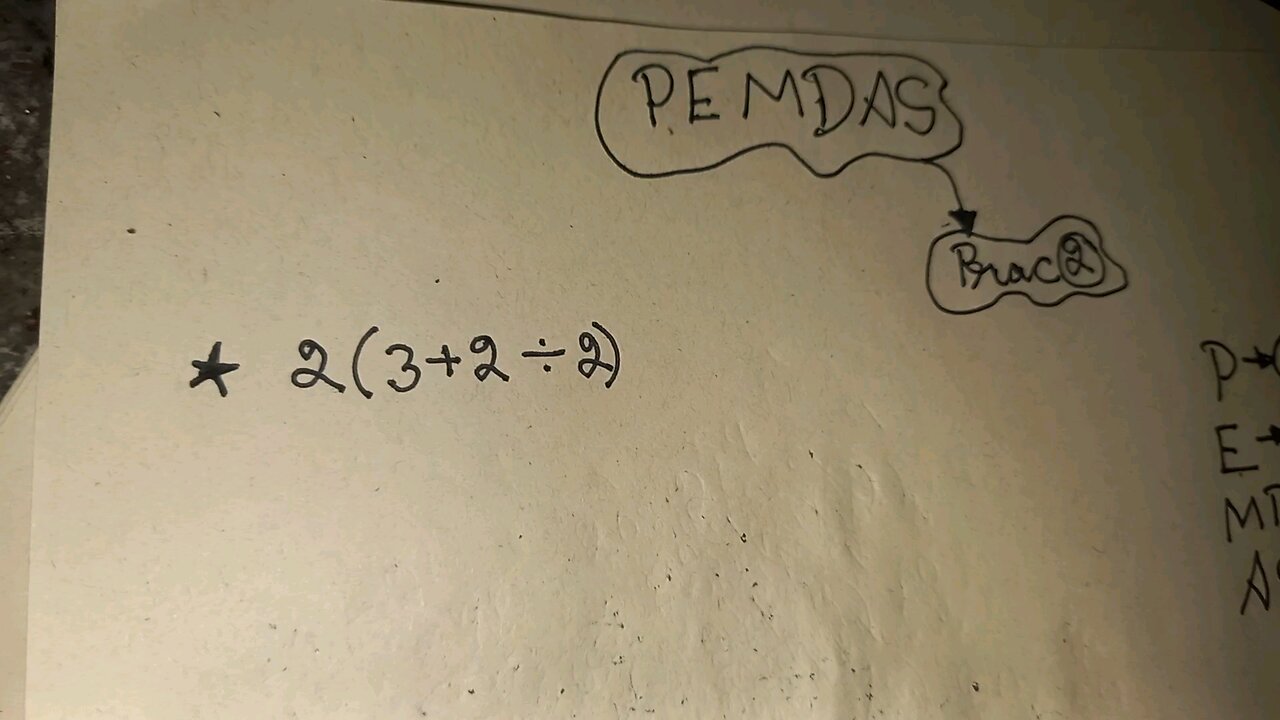 PEMDAS
Brac 2
★ 2(3+2÷2)
P→(
E→
MD
AS